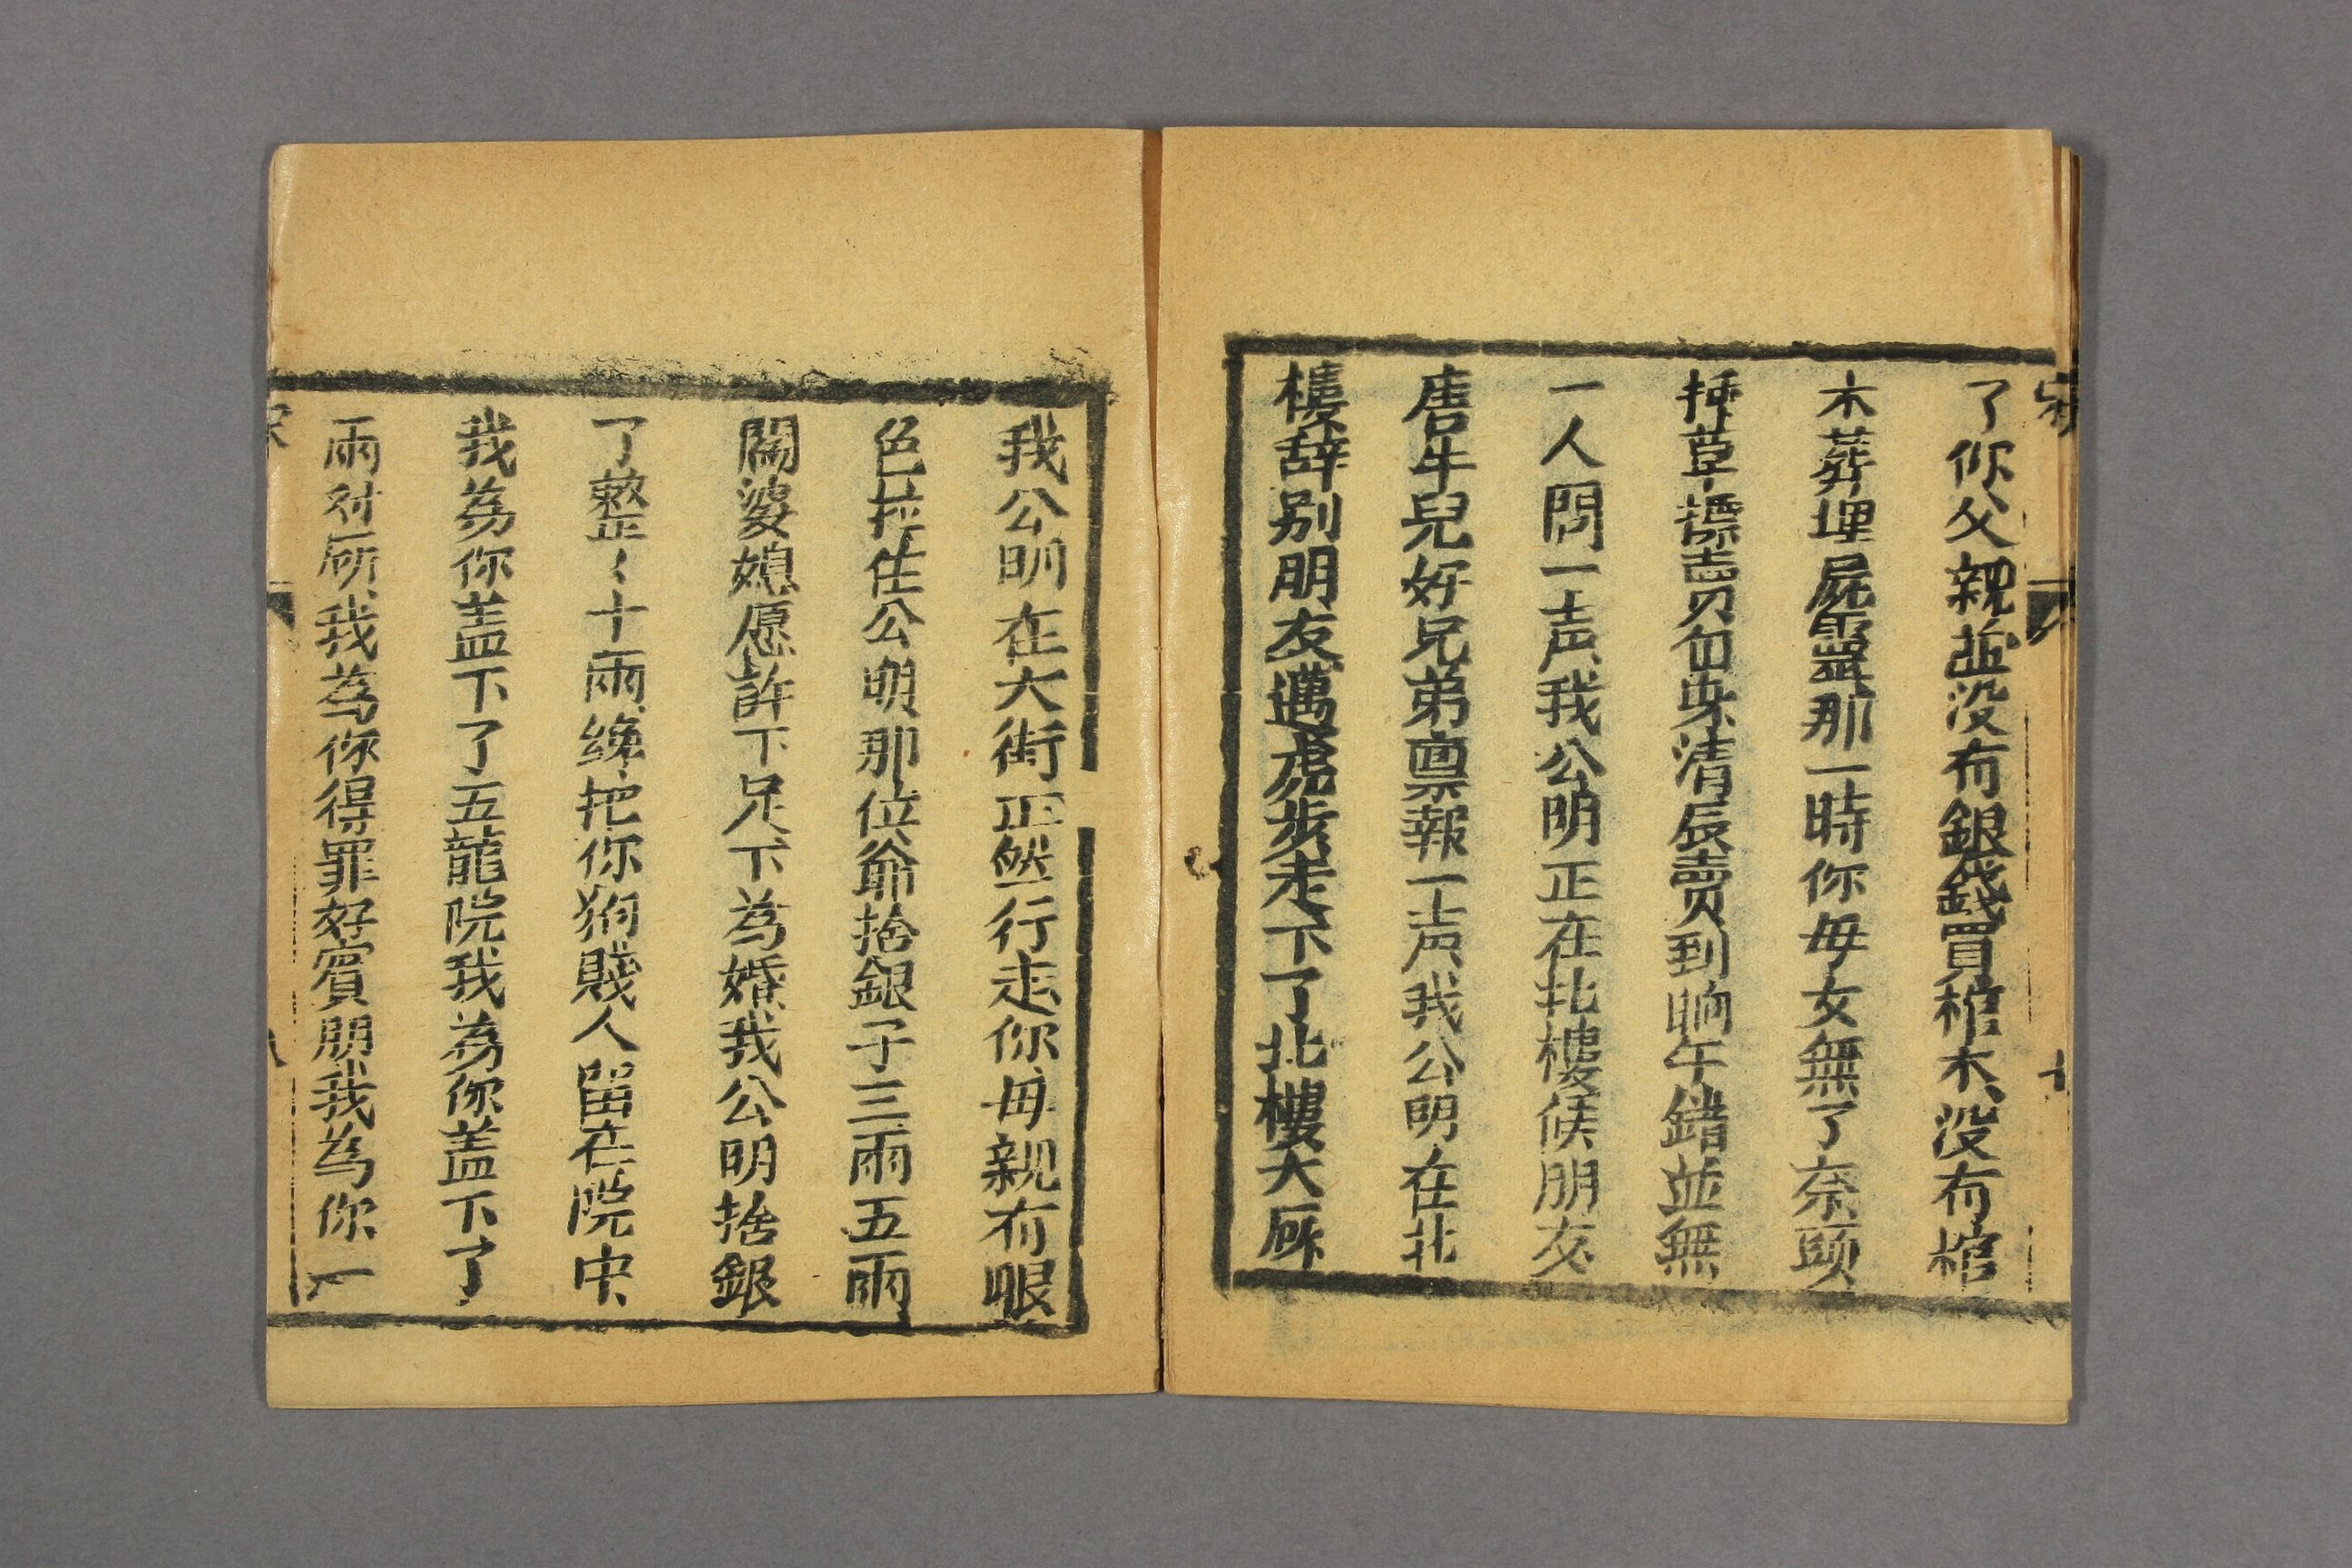 了你父親並没有銀錢買棺木没有棺
木葬埋屍靈那一時你毋女無了奈頭
揷草標賣勿自来清辰賣到晌午錯並無
一人問一声我公明正在北樓候朋友
唐牛兒好兄弟禀報一声我公明在北
樓辞别朋友邁虎步走下了北樓大厮
我公明在大街正然行走你毋親有眼
色拉住公明那位爺捨銀子三兩五兩
閻婆媳愿許下足下為婚我公明捨銀
了整〻十兩纔把你狗賤人留在院中
我為你盖下了五龍院我為你盖下了
兩对厮我為你得罪好賓朋我為你一